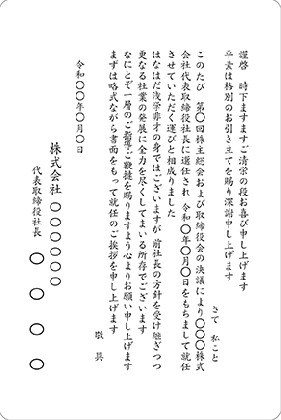 謹啓　時下ますますご清栄の段お喜び申し上げます
平素は格別のお引き立てを賜り深謝申し上げます
さて　私こと
このたび　第〇回株主総会および取締役会の決議により〇〇〇株式
会社代表取締役社長に選任され　令和〇年〇月〇日をもちまして就任
させていただく運びと相成りました
はなはだ浅学非才の身ではございますが　前社長の方針を受け継ぎつつ
更なる社業の発展に全力を尽くしてまいる所存でございます
なにとぞ一層のご指導ご鞭撻を賜りますよう心よりお願い申し上げます
まずは略式ながら書面をもって就任のご挨拶を申し上げます
敬具
令和〇〇年〇月〇日
株式会社〇〇〇〇〇〇
代表取締役社長　〇〇〇〇